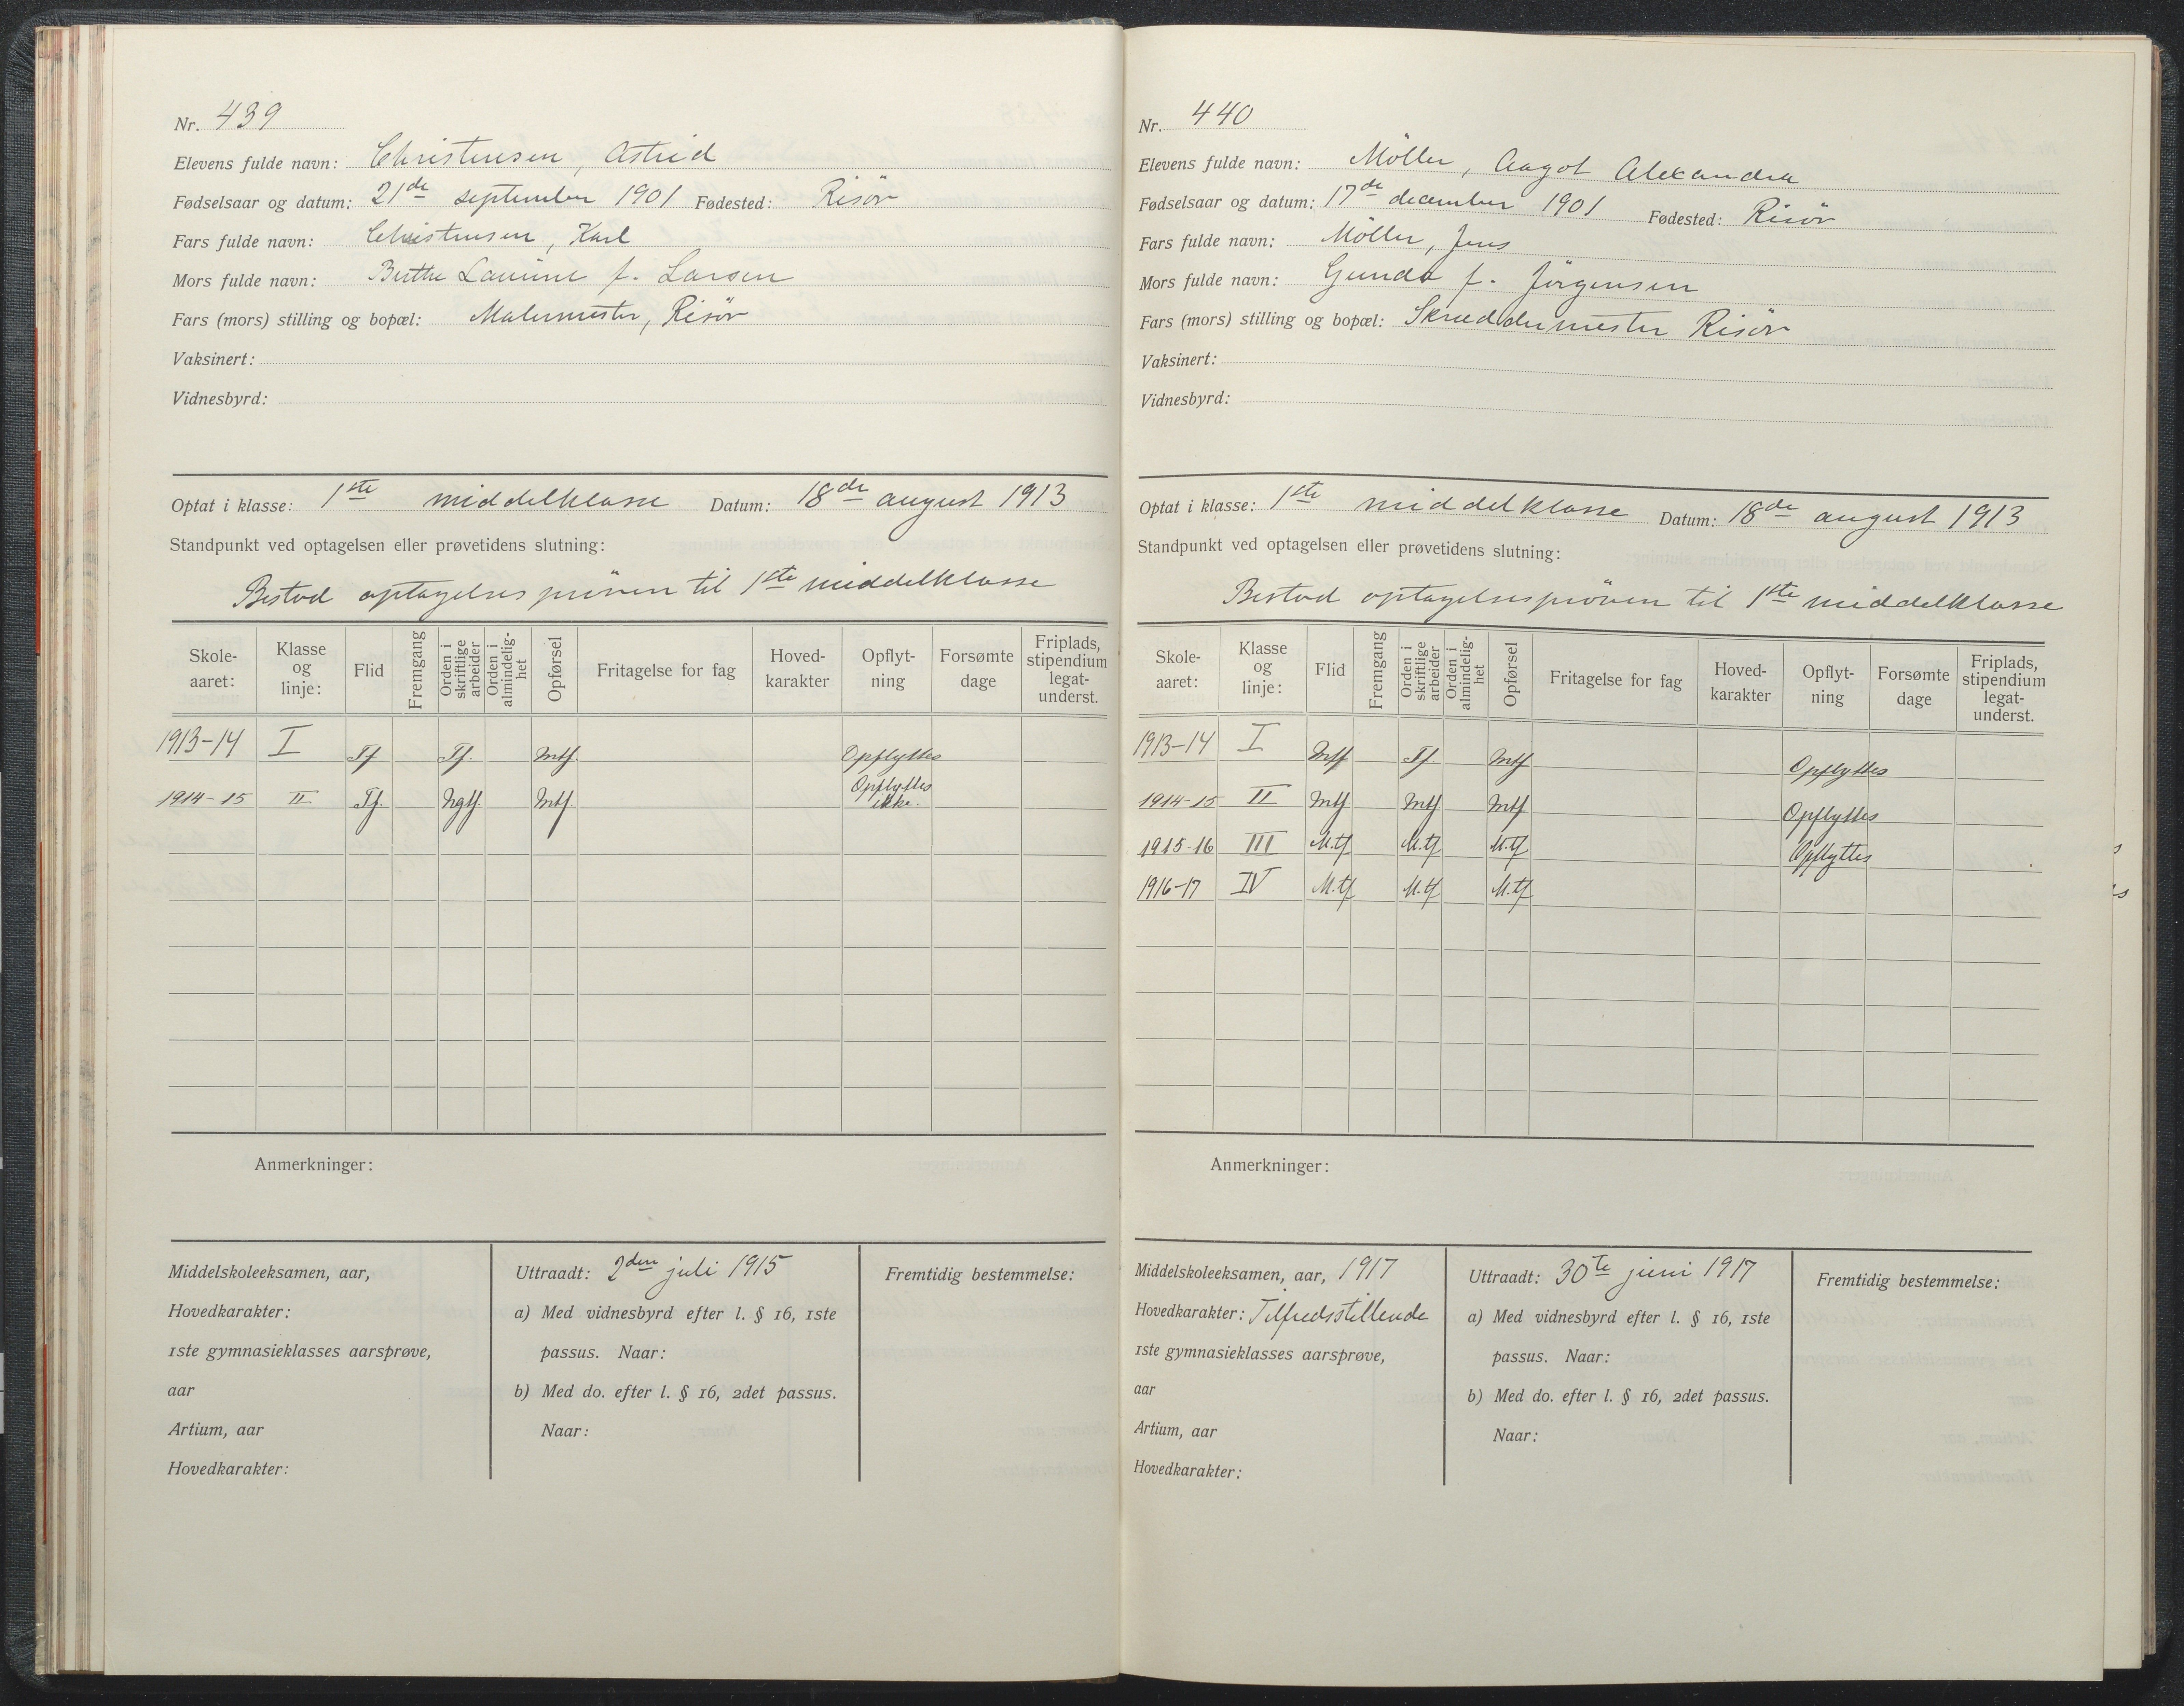 Nr. 439
Elevens fulde navn: Christensen, Astrid
Fødselsaar og datum: 21de september 1901 Fødested: Risör
Fars fulde navn: Christensen, Karl
Mors fulde navn: Berthe Laurine f. Larsen
Fars (mors) stilling og bopæl: Malermester, Risör
Vaksinert:
Vidnesbyrd:
Optat i klasse: 1ste middelklasse Datum: 18de august 1913
Standpunkt ved optagelsen eller prøvetidens slutning:
Bestod optagelsespröven til 1ste middelklasse
Skole-aaret: Klasse og linje: Flid Fremgang Orden i skriftlige arbeider Orden i almindelig-het Opførsel Fritagelse for fag Hoved-karakter Opflyt-ning Forsømte dage Friplads, stipendium legat-underst.
1913-14 I Tf. Tf. Mtf. Opflyttes
1914-15 II Tf. Ngtf. Mtf. Opflyttes ikke.
Anmerkninger:
Middelskoleeksamen, aar,
Hovedkarakter:
1ste gymnasieklasses aarsprøve,
aar
Artium, aar
Hovedkarakter:
Uttraadt: 2den juli 1915
a) Med vidnesbyrd efter l. § 16, 1ste
passus. Naar:
b) Med do. efter l. § 16, 2det passus.
Naar:
Fremtidig bestemmelse:
Nr. 440
Elevens fulde navn: Möller, Aagot Alexandra
Fødselsaar og datum: 17de december 1901 Fødested: Risör
Fars fulde navn: Möller, Jens
Mors fulde navn: Gunda f. Jörgensen
Fars (mors) stilling og bopæl: Skræddermester Risör
Vaksinert:
Vidnesbyrd:
Optat i klasse: 1ste middelklasse Datum: 18de august 1913
Standpunkt ved optagelsen eller prøvetidens slutning:
Bestod optagelsespröven til 1ste middelklasse
Skole-aaret: Klasse og linje: Flid Fremgang Orden i skriftlige arbeider Orden i almindelig-het Opførsel Fritagelse for fag Hoved-karakter Opflyt-ning Forsømte dage Friplads, stipendium legat-underst.
1913-14 I Mtf. Tf. Mtf. Opflyttes
1914-15 II Mtf Mtf Mtf Opflyttes
1915-16 III M.tf M.tf M.tf Opflyttes
1916-17 IV M.tf M.tf M.tf
Anmerkninger:
Middelskoleeksamen, aar, 1917
Hovedkarakter: Tilfredsstillende
1ste gymnasieklasses aarsprøve,
aar
Artium, aar
Hovedkarakter:
Uttraadt: 30te juni 1917
a) Med vidnesbyrd efter l. § 16, 1ste
passus. Naar:
b) Med do. efter l. § 16, 2det passus.
Naar:
Fremtidig bestemmelse: